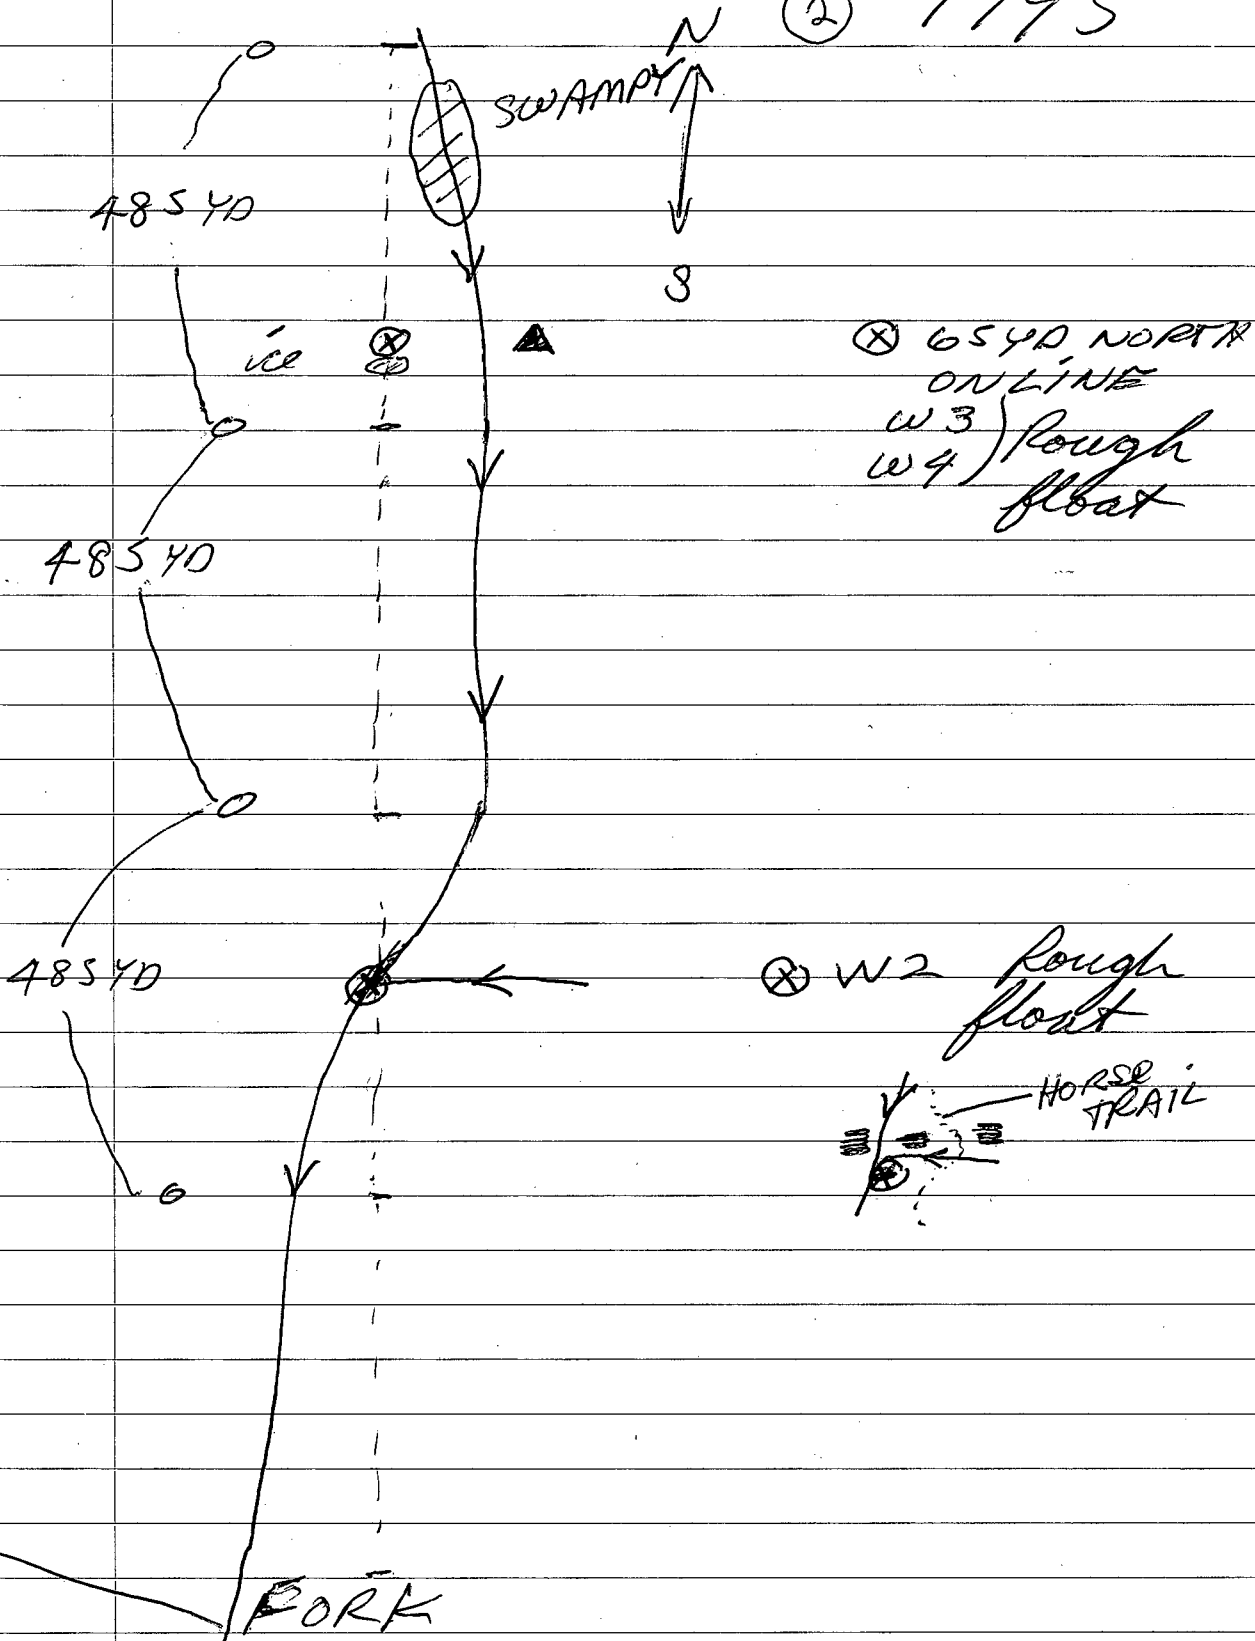 N ②
SWAMPY
485 YD
S
ice
⊗ 65 YD NORTH
ON LINE
W3
W4
Rough
float
485 YD
485 YD
⊗ W2 Rough
float
HORSE
TRAIL
FORK